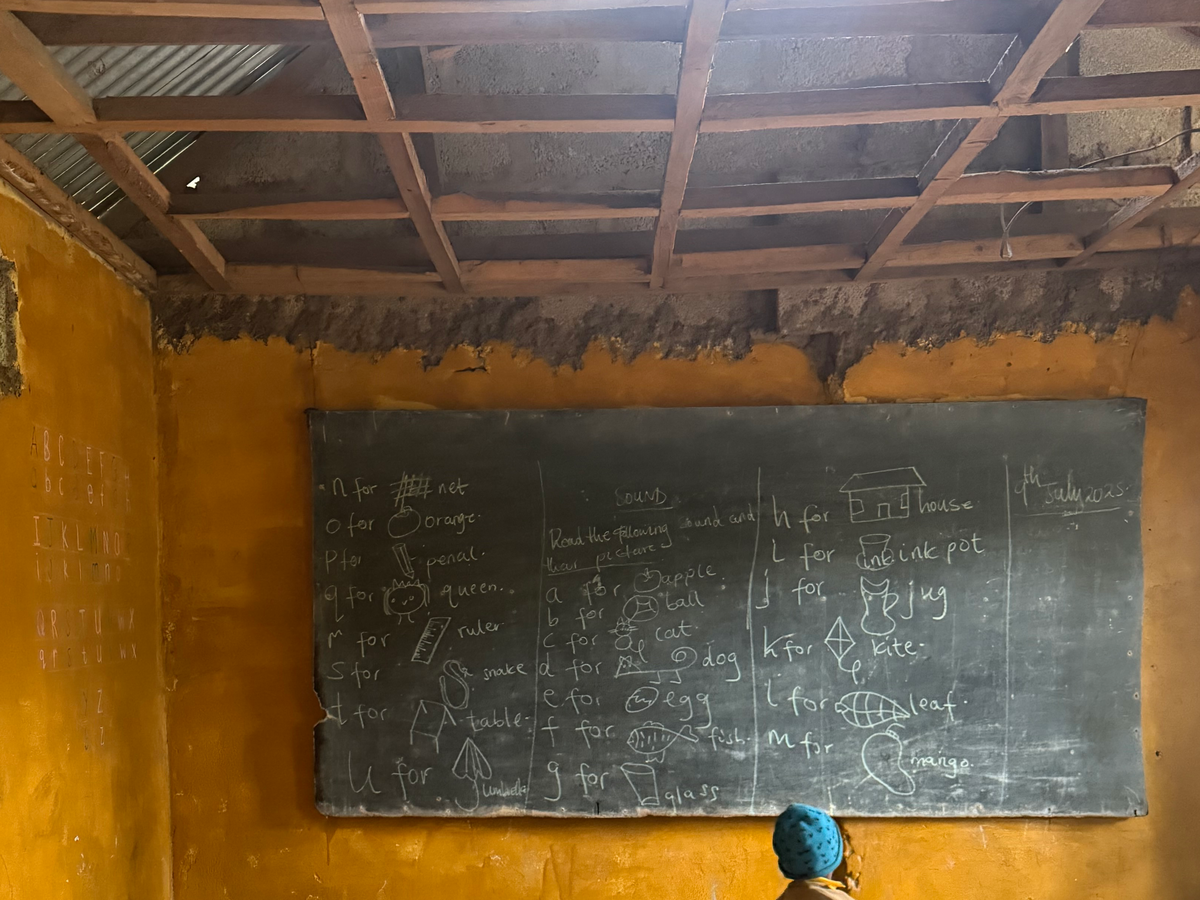 A B C E F
b c e f
I J K L M N O
Q R S T U W X
q r s t u w x
Z
n for net
o for orange.
p for penal.
q for queen.
r for ruler
s for snake
t for table.
u for umbrella
SOUND
Read the following sound and
thair picture
a for apple
b for ball
c for cat
d for dog
e for egg
f for fish.
g for glass
h for house
i for ink ink pot
j for jug
k for kite.
l for leaf.
m for mango.
9th July 2025.